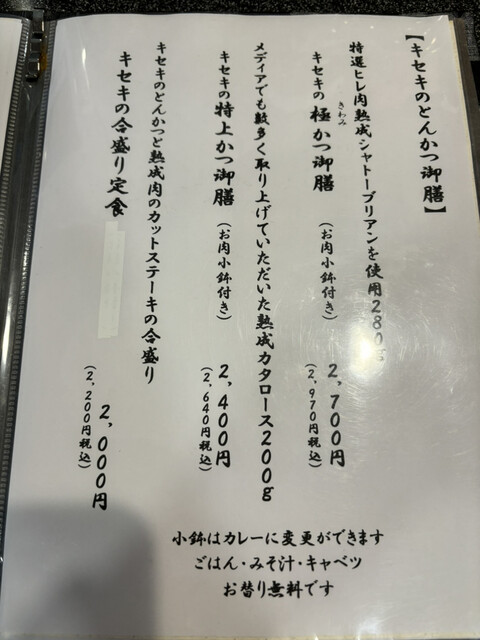 【キセキのとんかつ御膳】
特選ヒレ肉熟成シャトーブリアンを使用280g
きわみ
キセキの 極 かつ御膳 (お肉小鉢付き) 2,700円
(2,970円税込)
メディアでも数多く取り上げていただいた熟成カタロース200g
キセキの特上かつ御膳 (お肉小鉢付き) 2,400円
(2,640円税込)
キセキのとんかつと熟成肉のカットステーキの合盛り
キセキの合盛り定食 2,000円
(2,200円税込)
小鉢はカレーに変更ができます
ごはん・みそ汁・キャベツ
お替り無料です